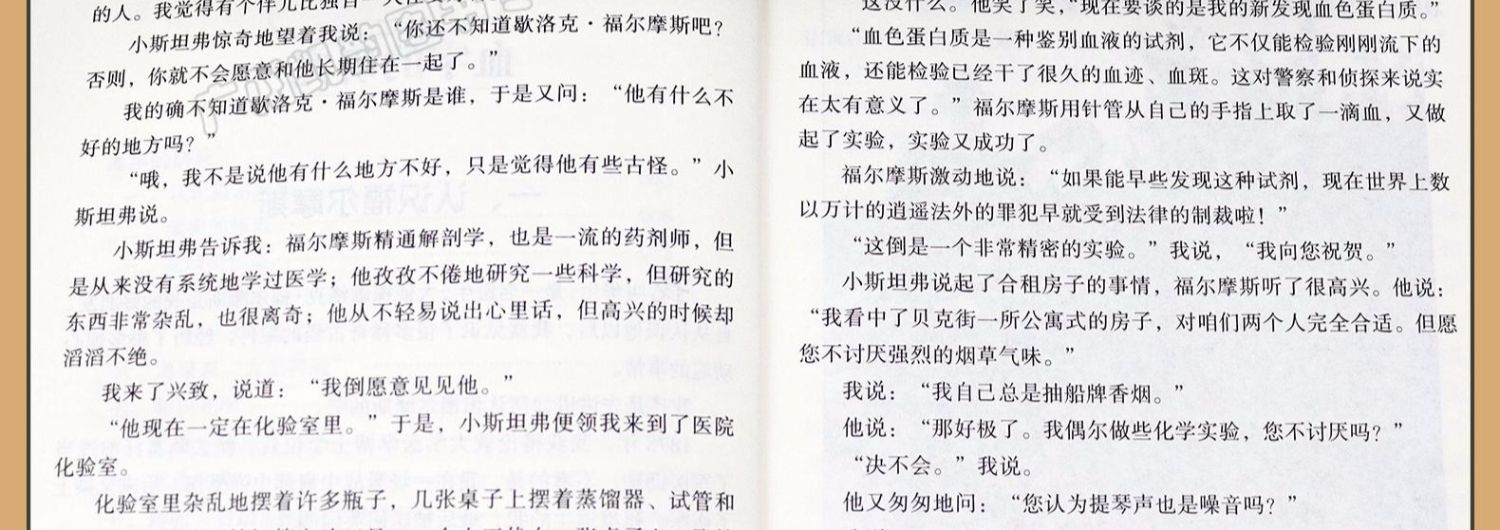 的人。我觉得有个伴儿比独自一
小斯坦弗惊奇地望着我说：“你还不知道歇洛克·福尔摩斯吧？
否则，你就不会愿意和他长期住在一起了。”
我的确不知道歇洛克·福尔摩斯是谁，于是又问：“他有什么不
好的地方吗？”
“哦，我不是说他有什么地方不好，只是觉得他有些古怪。”小
斯坦弗说。
小斯坦弗告诉我：福尔摩斯精通解剖学，也是一流的药剂师，但
是从来没有系统地学过医学；他孜孜不倦地研究一些科学，但研究的
东西非常杂乱，也很离奇；他从不轻易说出心里话，但高兴的时候却
滔滔不绝。
我来了兴致，说道：“我倒愿意见见他。”
“他现在一定在化验室里。”于是，小斯坦弗便领我来到了医院
化验室。
化验室里杂乱地摆着许多瓶子，几张桌子上摆着蒸馏器、试管和
这没什么。他笑了笑，“现在要谈的是我的新发现血色蛋白质。”
“血色蛋白质是一种鉴别血液的试剂，它不仅能检验刚刚流下的
血液，还能检验已经干了很久的血迹、血斑。这对警察和侦探来说实
在太有意义了。”福尔摩斯用针管从自己的手指上取了一滴血，又做
起了实验，实验又成功了。
福尔摩斯激动地说：“如果能早些发现这种试剂，现在世界上数
以万计的逍遥法外的罪犯早就受到法律的制裁啦！”
“这倒是一个非常精密的实验。”我说，“我向您祝贺。”
小斯坦弗说起了合租房子的事情，福尔摩斯听了很高兴。他说：
“我看中了贝克街一所公寓式的房子，对咱们两个人完全合适。但愿
您不讨厌强烈的烟草气味。”
我说：“我自己总是抽船牌香烟。”
他说：“那好极了。我偶尔做些化学实验，您不讨厌吗？”
“决不会。”我说。
他又匆匆地问：“您认为提琴声也是噪音吗？”